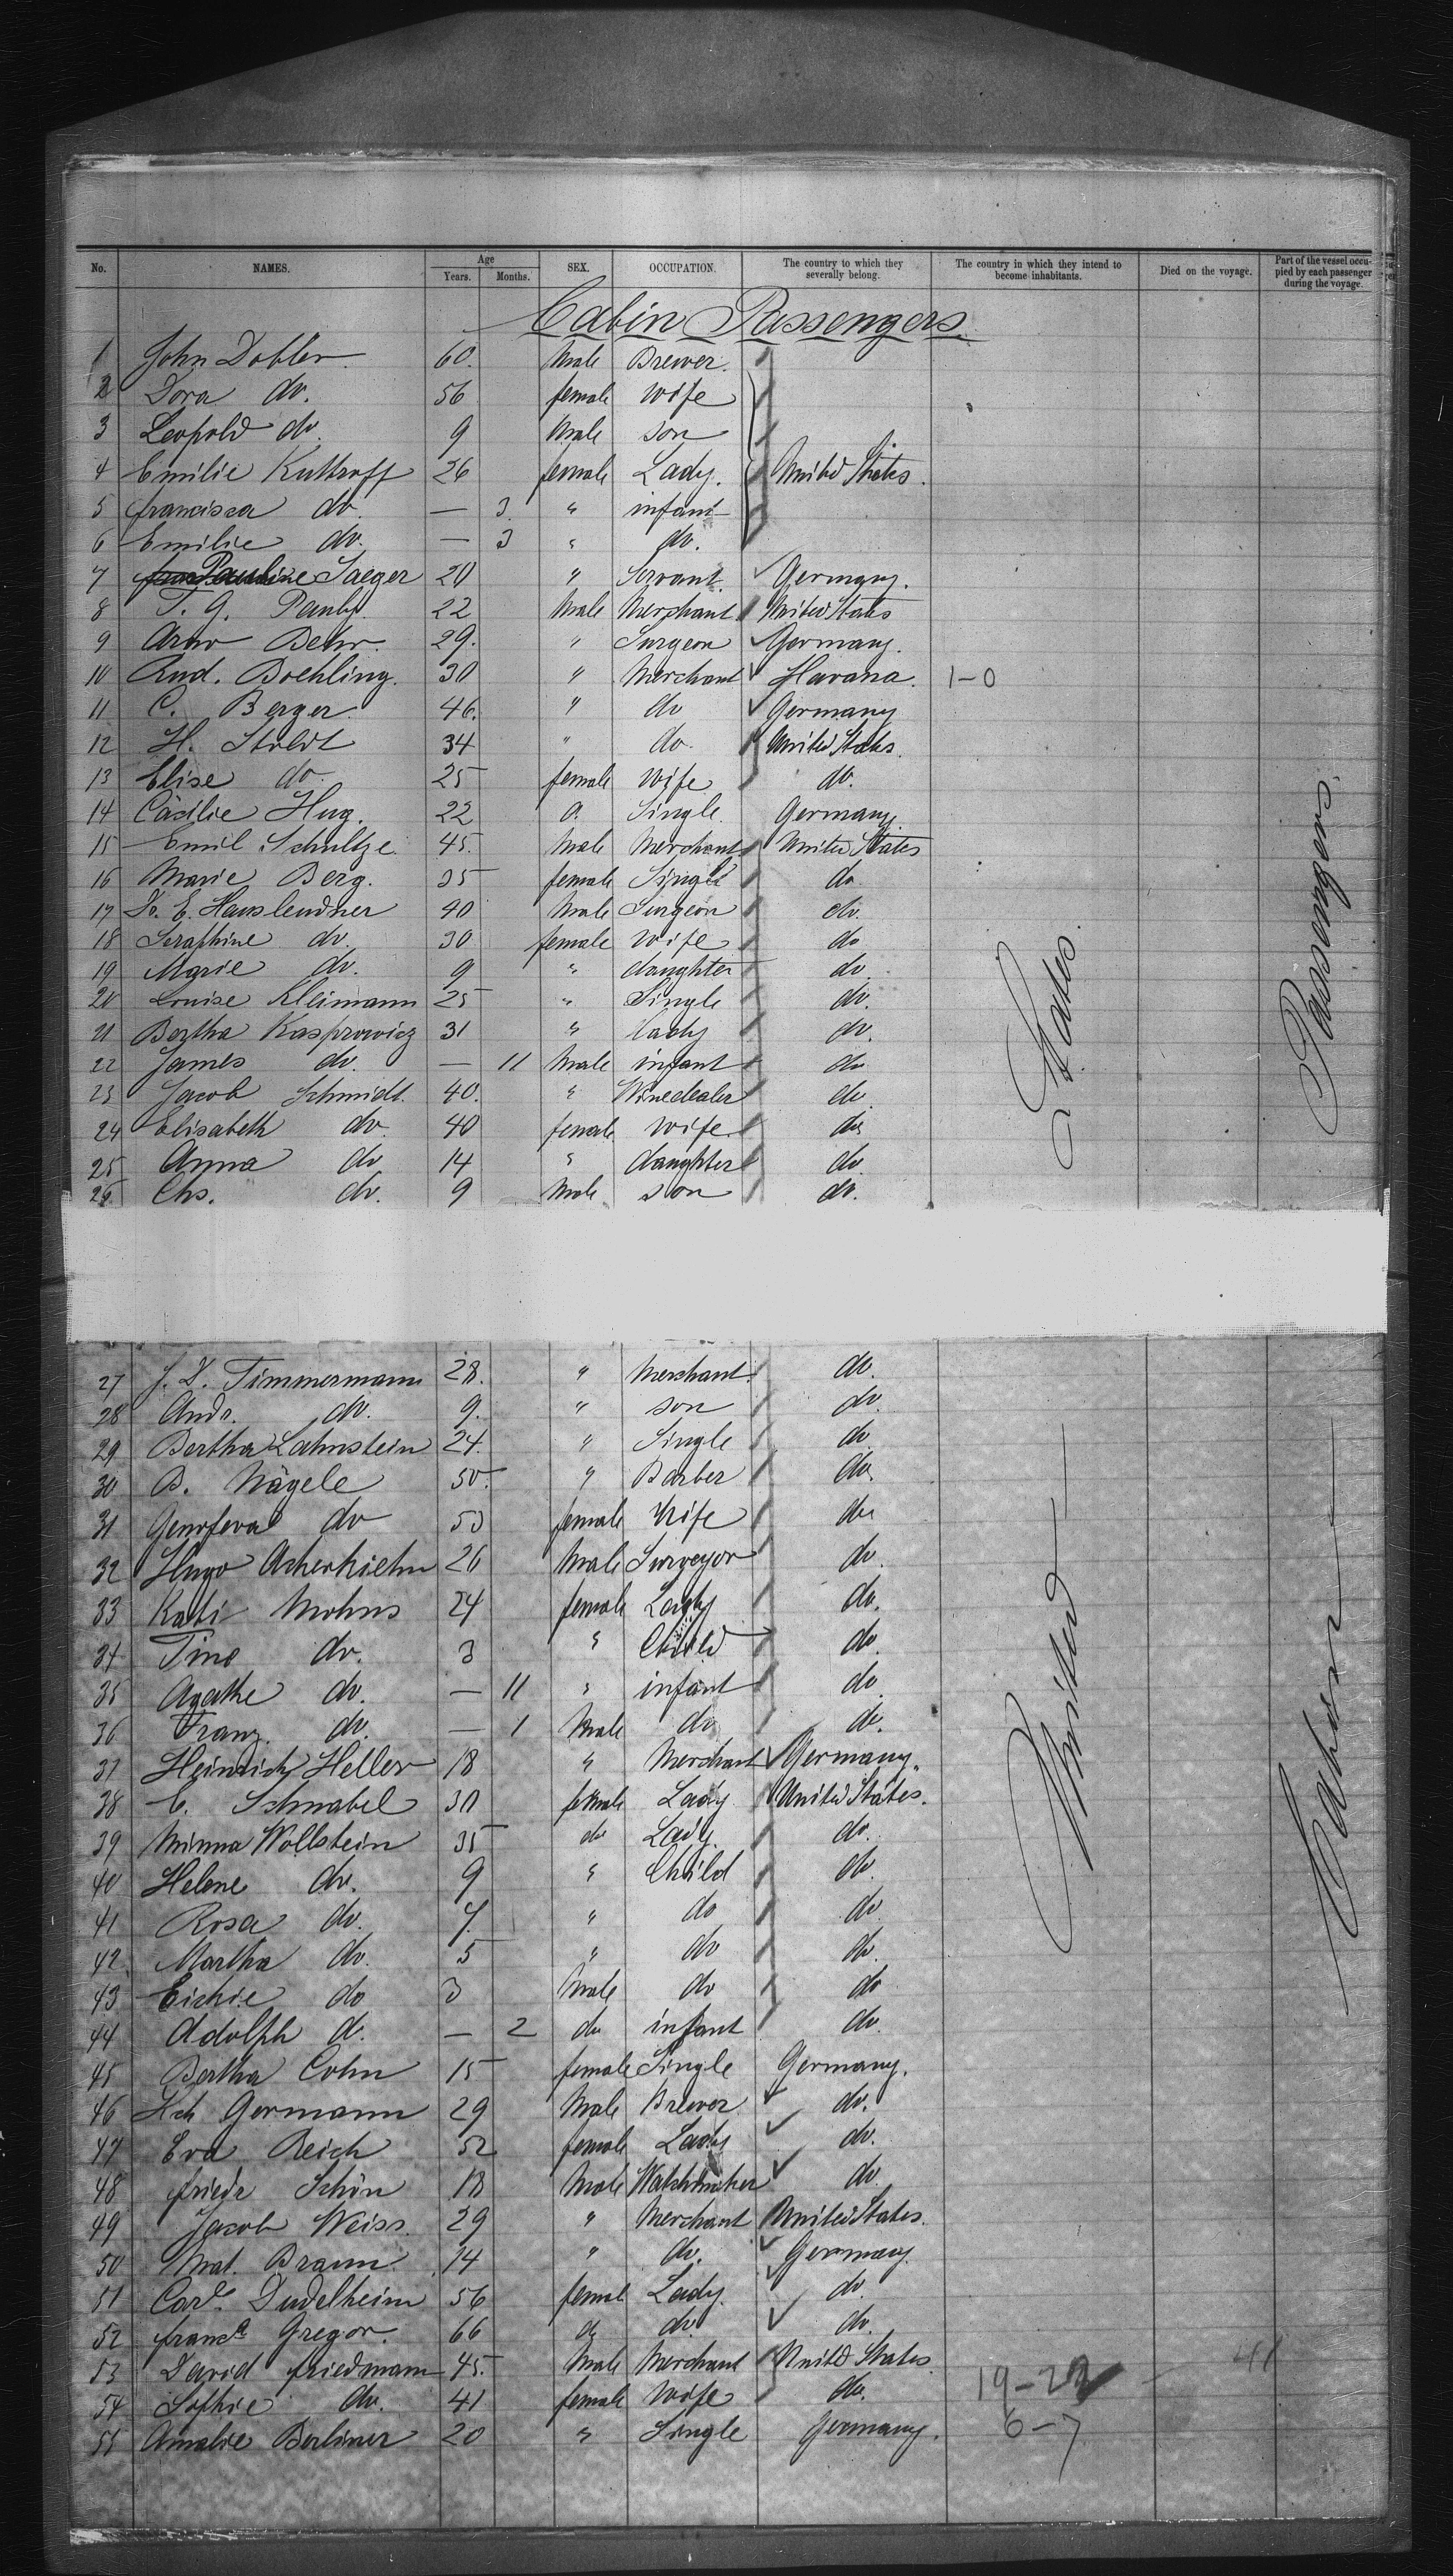 No. NAMES. Age Years. Months. SEX. OCCUPATION. The country to which they severally belong. The country in which they intend to become inhabitants. Died on the voyage. Part of the vessel occupied by each passenger during the voyage.
Cabin Passengers
1 John Dobler 60. Male Brewer.
2 Dora do. 56 female wife
3 Leopold do. 9 Male son
4 Emilie Kuttroff 26 female Lady. United States.
5 Francisca do. — 3. " infant
6 Emilie do. — 3 " do.
7 Pauline Saeger 20 " Servant Germany.
8 T. G. Pauly 22 Male Merchant United States
9 Arno Behr 29. " Surgeon Germany.
10 Rud. Boehling. 30 " Merchant Havana. 1-0
11 C. Berger 46. " do Germany
12 H. Stoldt 34 " do. United States.
13 Elise do. 25 female wife do.
14 Cäcilie Hug. 22 Single. Germany.
15 Emil Schultze 45. Male Merchant United States
16 Marie Berg. 35 female Single do
17 Dr. E. Hauslendner 40 Male Surgeon do.
18 Seraphine do. 30 female wife do
19 Marie do. 9 " daughter do.
20 Louise Kleimann 25 " Single do.
21 Bertha Kasprowicz 31 " Lady do.
22 James do. — 11 Male infant do
23 Jacob Schmidt. 40. " Winedealer do.
24 Elisabeth do. 40 female wife do
25 Anna do 14 " daughter do.
26 Chs. do. 9 Male son do.
27 J. D. Timmermann 28. " Merchant do.
28 Andr. do. 9. " son do.
29 Bertha Lahnstein 24. " Single do
30 B. Nägele 50. " Barber do.
31 Genofeva do 53 female Wife do
32 Hugo Ackerkiehn 26 Male Surveyor do.
33 Kati Mohns 24 female Lady do.
34 Tino do. 3 " Child do
35 Agathe do. — 11 " infant do
36 Franz. do. — 1 Male do do.
37 Heinrich Heller 18 " Merchant Germany.
38 C. Schnabel 30 female Lady United States.
39 Minna Wollstein 35 do Lady do.
40 Helene do. 9 " Child do.
41 Rosa do. 7. " do do
42 Martha do. 5 " do do.
43 Eichie do 3 Male do do
44 Adolph d. — 2 do infant do.
45 Bertha Cohn 15 female Single Germany.
46 Hch Germann 29 Male Brewer do.
47 Eva Reich 52 female Lady do.
48 Friedr Schön 18 Male Watchmaker do
49 Jacob Weiss. 29 " Merchant United States.
50 Mat. Braun 14 " do. Germany.
51 Carl. Dudelheim 56 female Lady do
52 Franc. Gregor. 66 do do. do.
53 David Friedmann 45. Male Merchant United States
54 Sophie do. 41 female wife do. 19-22
55 Amalie Berliner 20 " Single Germany. 6-7
United States.
Cabin Passengers.